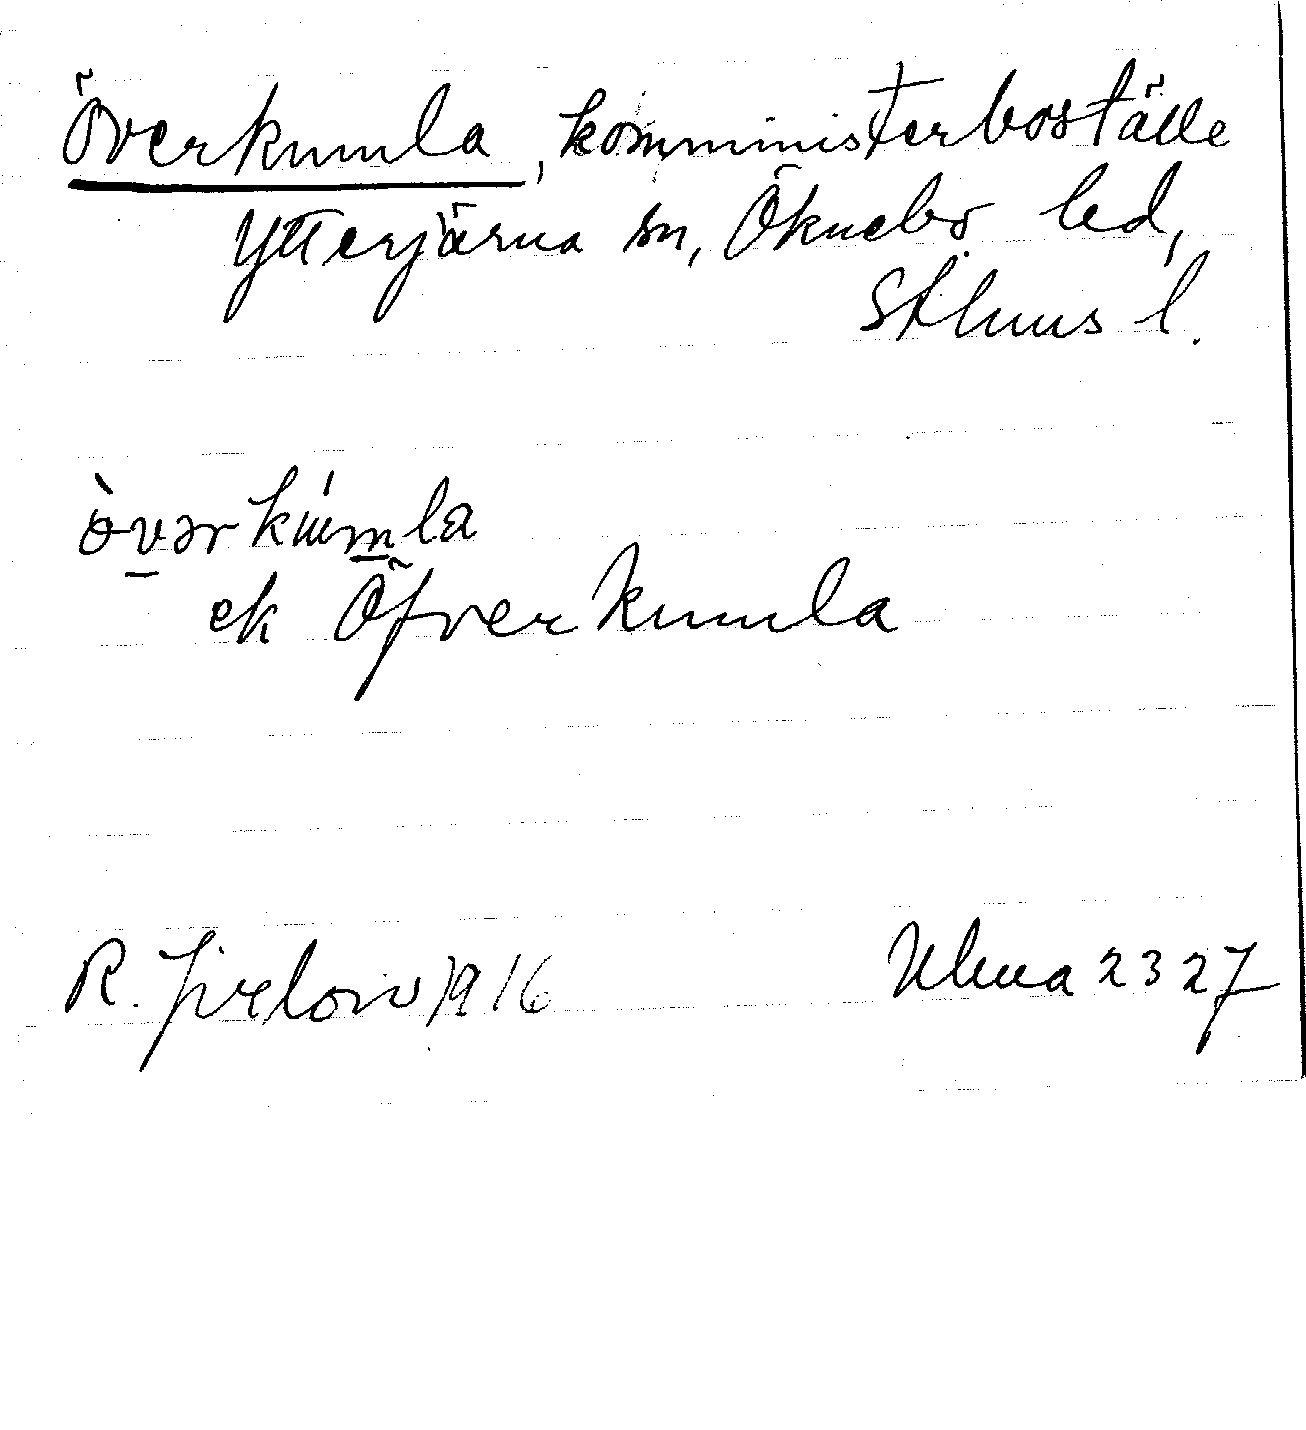 Överkumla, komministerboställe
Ytterjärna sn, Öknebo hd,
Sthlms l.
òvərkúmla
ek Öfverkumla
R. Jirlow 1916
Ulma 2327